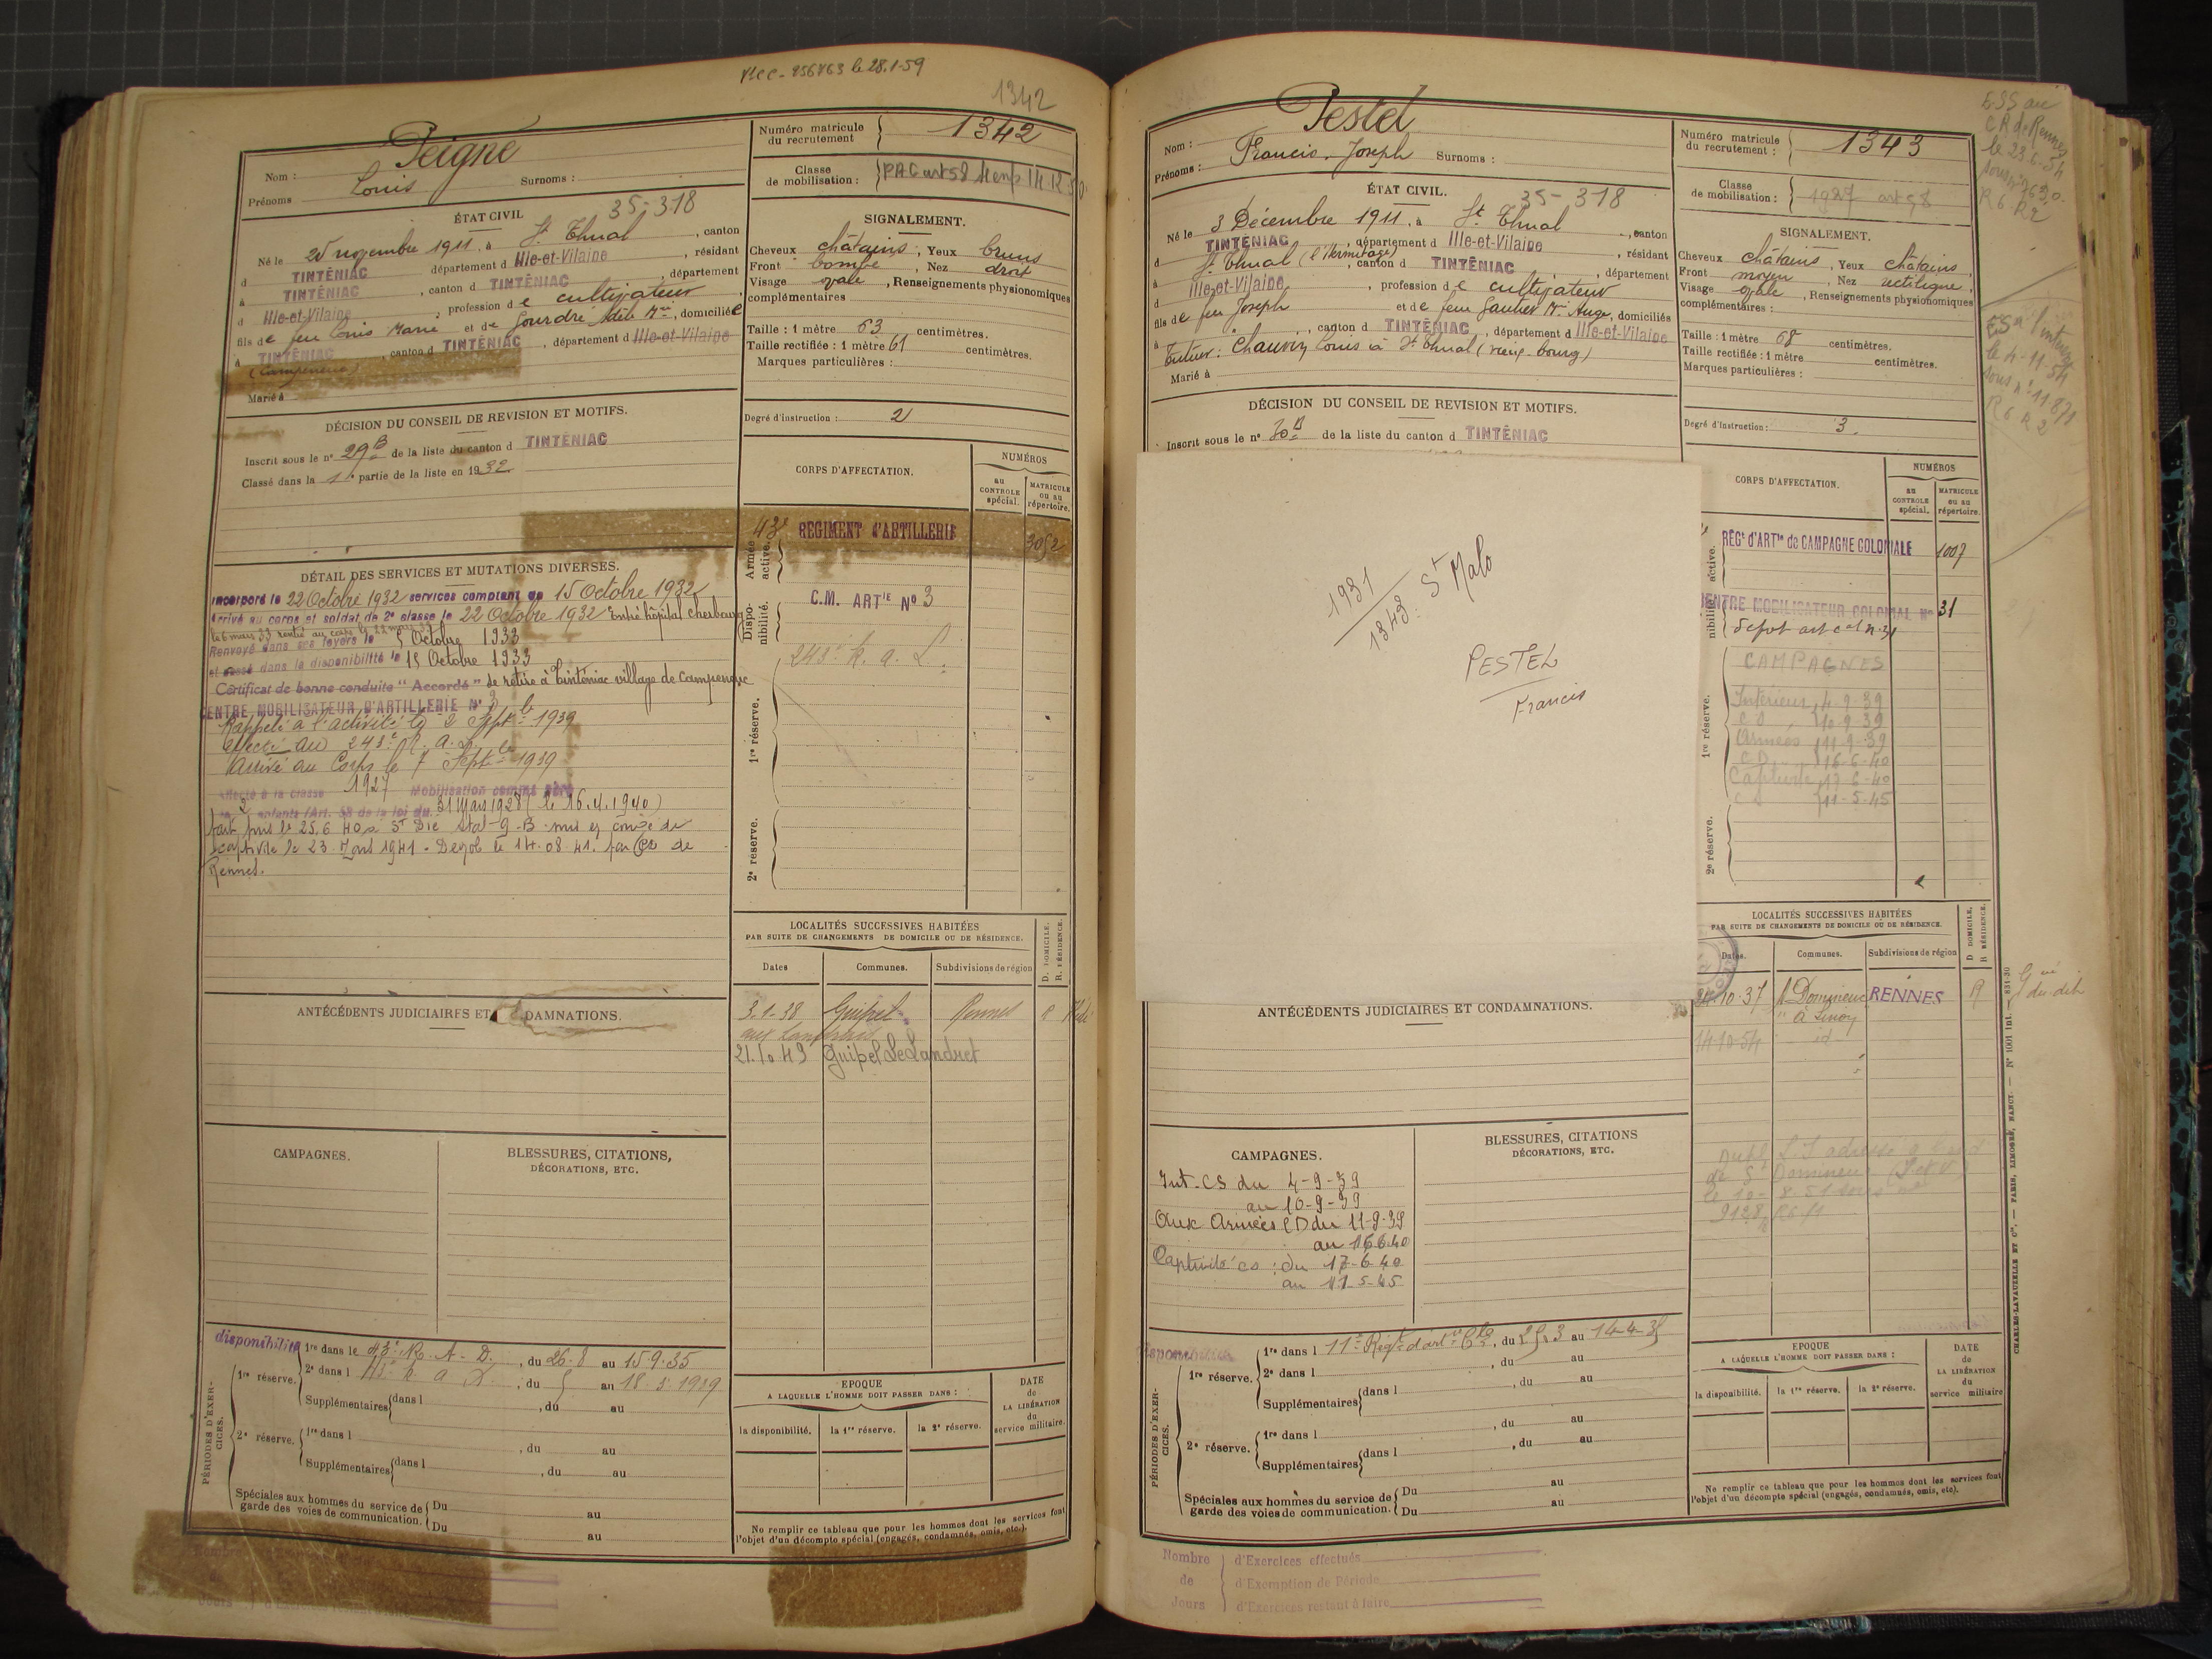 1342
Nom : Peigné
Prénoms Louis Surnoms :
Numéro matricule du recrutement 1342
Classe de mobilisation : PAC art 58
ÉTAT CIVIL 35-318
Né le 25 novembre 1911, à St Thual, canton
d TINTÉNIAC département d Ille-et-Vilaine, résidant
à TINTÉNIAC, canton d TINTÉNIAC, département
d Ille-et-Vilaine, profession de cultivateur
fils de feu Louis Marie et de Gourdré, domiciliée
à TINTÉNIAC, canton d TINTÉNIAC, département d Ille-et-Vilaine
Marié à
SIGNALEMENT.
Cheveux châtains, Yeux bruns
Front bombé, Nez droit
Visage ovale, Renseignements physionomiques
complémentaires
Taille : 1 mètre 63 centimètres.
Taille rectifiée : 1 mètre 61 centimètres.
Marques particulières :
Degré d'instruction : 2
DÉCISION DU CONSEIL DE REVISION ET MOTIFS.
Inscrit sous le n° 29 B de la liste du canton d TINTÉNIAC
Classé dans la 1e partie de la liste en 1932
CORPS D'AFFECTATION.
NUMÉROS
au CONTROLE spécial.
MATRICULE ou au répertoire.
Armée active. 43e REGIMENT d'ARTILLERIE 3052
Disponibilité. C.M. ARTIE No 3
243e R. a. L.
1re réserve.
2e réserve.
DÉTAIL DES SERVICES ET MUTATIONS DIVERSES.
Incorporé le 22 Octobre 1932 services comptant du 15 Octobre 1932
Arrivé au corps et soldat de 2e classe le 22 Octobre 1932 Entré hôpital Cherbourg
le 6 mars 33 rentré au corps le 22 mars 33
Renvoyé dans ses foyers le 5 Octobre 1933
et passé dans la disponibilité le 15 Octobre 1933
Certificat de bonne conduite "Accordé" se retire à Tinténiac village de Campenouc
CENTRE MOBILISATEUR D'ARTILLERIE N° 3
Rappelé à l'activité le 2 Septbre 1939
affecté au 243e R. a. L.
Arrivé au Corps le 7 Septbre 1939
Affecté à la classe 1927 Mobilisation comme père
2 enfants (Art. 58 de la loi du 31 Mars 1928) (le 16.4.1940)
fait pris le 25.6.40 à St Dié Stal-9-B mis en congé de
captivité le 23 Mars 1941. Demob le 14.08.41. par Ce de
Rennes.
LOCALITÉS SUCCESSIVES HABITÉES
PAR SUITE DE CHANGEMENTS DE DOMICILE OU DE RÉSIDENCE.
Dates Communes. Subdivisions de région
D. DOMICILE. R. RÉSIDENCE.
3.1.38 Guipel Rennes R
21.10.49 Guipel Le Landret
ANTÉCÉDENTS JUDICIAIRES ET DAMNATIONS.
CAMPAGNES.
BLESSURES, CITATIONS, DÉCORATIONS, ETC.
PÉRIODES D'EXERCICES.
disponibilité
1re réserve. 1re dans le 43e R. A. D., du 26.8 au 15.9.35
2e dans l, du 5 au 18.3.1939
Supplémentaires dans l, du au
2e réserve. 1re dans l, du au
Supplémentaires dans l, du au
Spéciales aux hommes du service de garde des voies de communication. Du au
Du au
EPOQUE
A LAQUELLE L'HOMME DOIT PASSER DANS :
la disponibilité. la 1re réserve. la 2e réserve.
DATE de LA LIBÉRATION du service militaire.
Ne remplir ce tableau que pour les hommes dont les services font
l'objet d'un décompte spécial (engagés, condamnés, omis, etc.).
Nom : Pestel
Prénoms : Francis Joseph Surnoms :
Numéro matricule du recrutement : 1343
Classe de mobilisation : 1927 art 58
ÉTAT CIVIL. 35-318
Né le 3 Décembre 1911, à St Thual, canton
d TINTÉNIAC, département d Ille-et-Vilaine, résidant
à St Thual (l'Hermitage), canton d TINTÉNIAC, département
d Ille-et-Vilaine, profession de cultivateur
fils de feu Joseph et de feu Gautier Mie Ange, domiciliés
à, canton d TINTÉNIAC, département d Ille-et-Vilaine
Tuteur : Chauvin Louis à St Thual (vieux bourg)
Marié à
SIGNALEMENT.
Cheveux châtains, Yeux châtains,
Front moyen, Nez rectiligne,
Visage ovale, Renseignements physionomiques
complémentaires :
Taille : 1 mètre 68 centimètres.
Taille rectifiée : 1 mètre centimètres.
Marques particulières :
Degré d'instruction : 3.
DÉCISION DU CONSEIL DE REVISION ET MOTIFS.
Inscrit sous le n° 30 B de la liste du canton d TINTÉNIAC
1931
1343 St Malo
PESTEL
Francis
CORPS D'AFFECTATION.
NUMÉROS
au CONTROLE spécial.
MATRICULE ou au répertoire.
active. RÉGt d'ARTIe de CAMPAGNE COLONIALE 1007
nibilité CENTRE MOBILISATEUR COLONIAL No 31
dépôt art cal n. 31
1re réserve.
CAMPAGNES
Intérieur 4-9-39
C S 10-9-39
Armées 11-9-39
C D 16-6-40
Captivité 17-6-40
C S 11-5-45
2e réserve.
LOCALITÉS SUCCESSIVES HABITÉES
PAR SUITE DE CHANGEMENTS DE DOMICILE OU DE RÉSIDENCE.
Dates. Communes. Subdivisions de région
D DOMICILE. R RÉSIDENCE.
10.37 St Domineuc RENNES R
14-10-54 id
ANTÉCÉDENTS JUDICIAIRES ET CONDAMNATIONS.
CAMPAGNES.
Int. CS du 4-9-39
au 10-9-39
Aux Armées CD du 11-9-39
au 16.6.40
Captivité cs : du 17-6-40
au 11-5-45
BLESSURES, CITATIONS DÉCORATIONS, ETC.
PÉRIODES D'EXERCICES.
1re réserve. 1re dans l 11e Régt d'art Cle, du 25.3 au 14-4-35
2e dans l, du au
Supplémentaires dans l, du au
2e réserve. 1re dans l, du au
Supplémentaires dans l, du au
Spéciales aux hommes du service de garde des voies de communication. Du au
Du au
EPOQUE
A LAQUELLE L'HOMME DOIT PASSER DANS :
la disponibilité. la 1re réserve. la 2e réserve.
DATE de LA LIBÉRATION du service militaire
Ne remplir ce tableau que pour les hommes dont les services font
l'objet d'un décompte spécial (engagés, condamnés, omis, etc).
Nombre de Jours
d'Exercices effectués
d'Exemption de Période
d'Exercices restant à faire
CHARLES-LAVAUZELLE ET Cie. — PARIS, LIMOGES, NANCY. — N° 1001 Int. 831-30